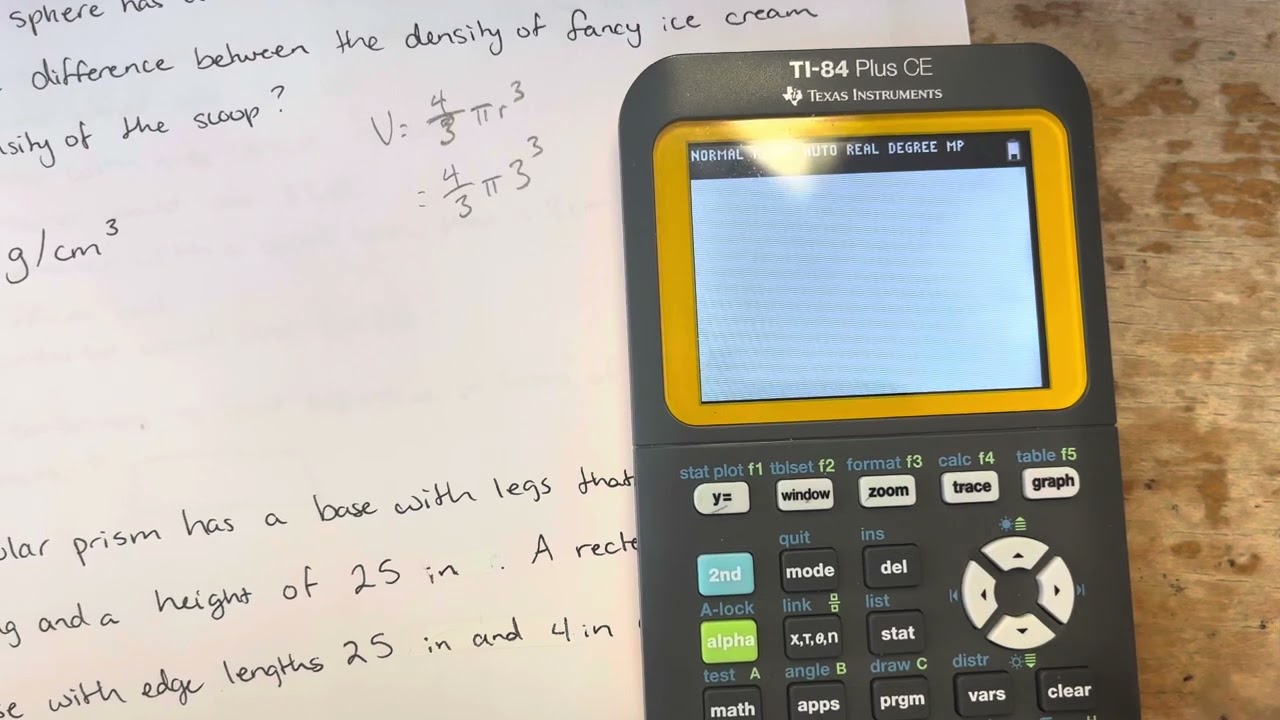 sphere has
difference between the density of fancy ice cream
sity of the scoop?
V= 4/3 πr³
= 4/3 π3³
g/cm³
lar prism has a base with legs that
g and a height of 25 in. A recta
se with edge lengths 25 in and 4 in
TI-84 Plus CE
TEXAS INSTRUMENTS
NORMAL AUTO REAL DEGREE MP
stat plot f1 tblset f2 format f3 calc f4 table f5
y= window zoom trace graph
quit ins
2nd mode del
A-lock link list
alpha x,T,θ,n stat
test A angle B draw C distr
math apps prgm vars clear